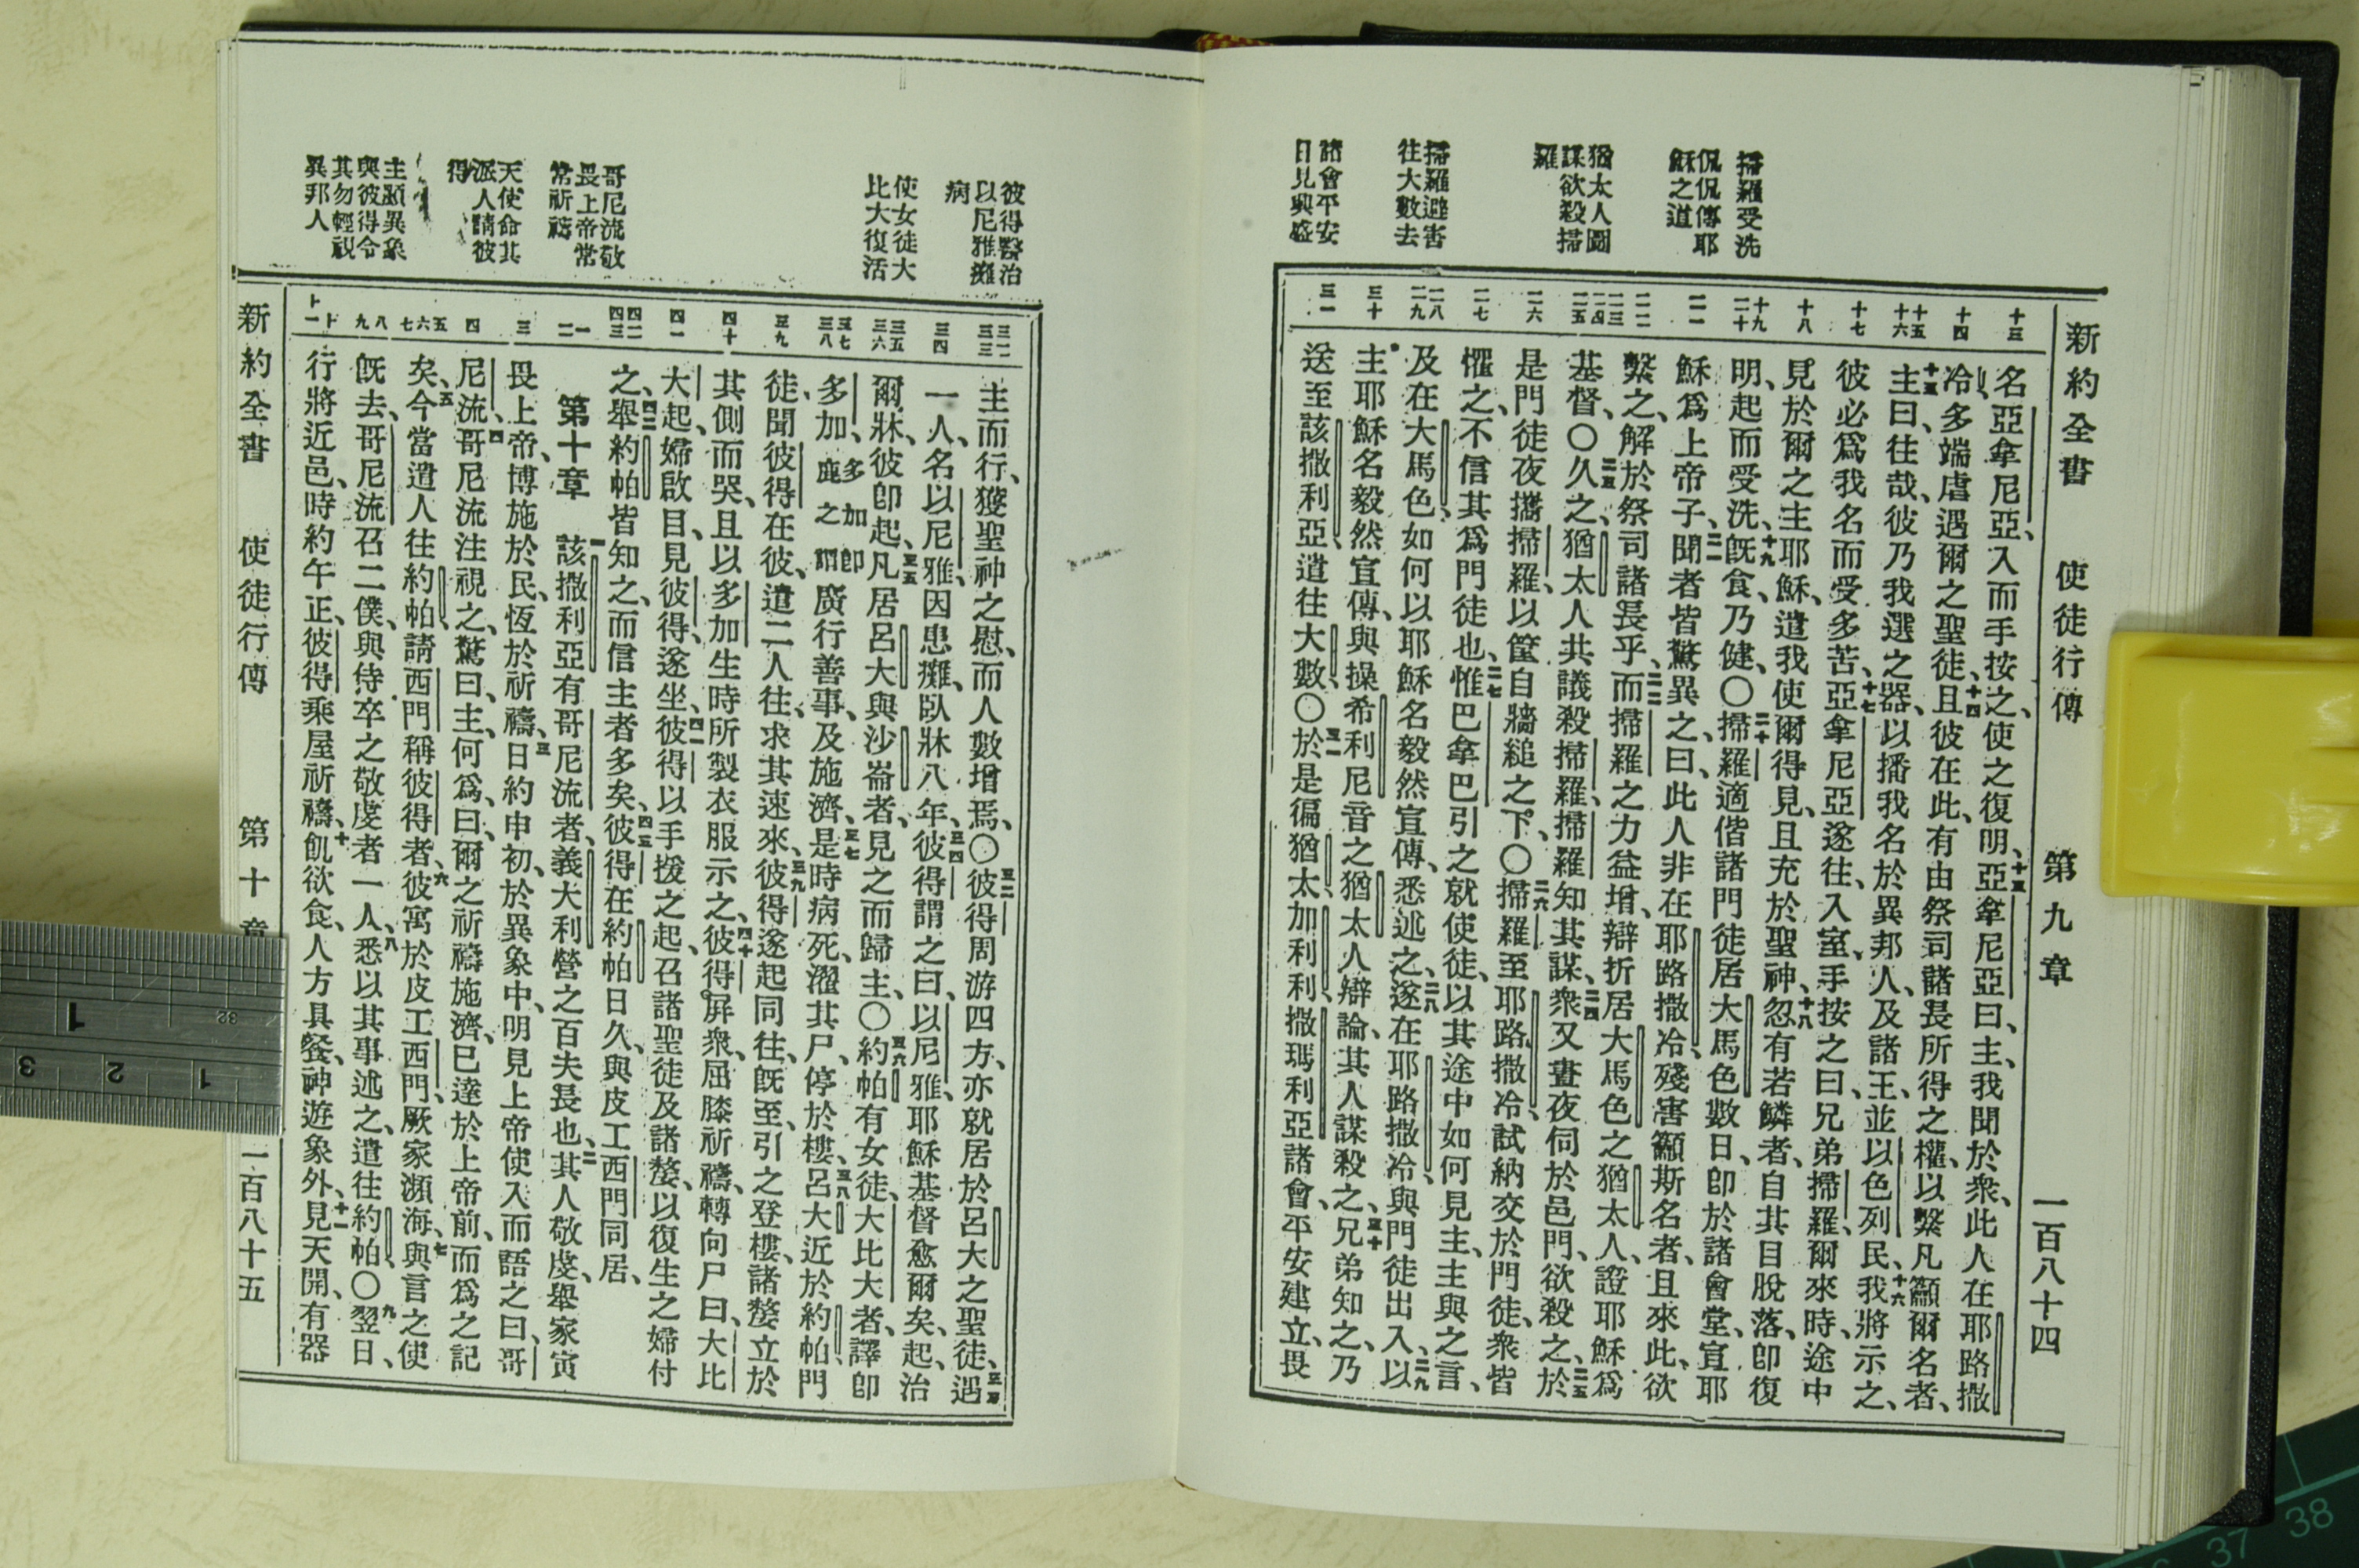 新約全書 使徒行傳 第九章 一百八十四
掃羅受洗
侃侃傳耶
穌之道
猶太人圖
謀欲殺掃
羅
掃羅避害
往大數去
諸會平安
日見興盛
十三 十四 十五 十六 十七 十八 十九 二十 二一 二二 二三 二四 二五 二六 二七 二八 二九 三十 三一
名亞拿尼亞、入而手按之、使之復明、十三亞拿尼亞曰、主、我聞於衆、此人在耶路撒
冷、多端虐遇爾之聖徒、十四且彼在此、有由祭司諸長所得之權、以繫凡籲爾名者、
十五主曰、往哉、彼乃我選之器、以播我名於異邦人、及諸王、並以色列民、十六我將示之、
彼必爲我名而受多苦、十七亞拿尼亞遂往、入室、手按之曰、兄弟掃羅、爾來時、途中
見於爾之主耶穌、遣我使爾得見、且充於聖神、十八忽有若鱗者、自其目脫落、卽復
明、起而受洗、十九旣食、乃健、○二十掃羅適偕諸門徒居大馬色數日、卽於諸會堂、宣耶
穌爲上帝子、二一聞者皆驚異之、曰、此人非在耶路撒冷、殘害籲斯名者、且來此、欲
繫之、解於祭司諸長乎、二二而掃羅之力益增、辯折居大馬色之猶太人、證耶穌爲
基督、○二三久之、猶太人共議殺掃羅、掃羅知其謀、二四衆又晝夜伺於邑門、欲殺之、二五於
是門徒夜攜掃羅、以筐自牆縋之下、○二六掃羅至耶路撒冷、試納交於門徒、衆皆
懼之、不信其爲門徒也、二七惟巴拿巴引之就使徒、以其途中如何見主、主與之言、
及在大馬色、如何以耶穌名毅然宣傳、悉述之、二八遂在耶路撒冷、與門徒出入、二九以
主耶穌名毅然宣傳、與操希利尼音之猶太人辯論、其人謀殺之、三十兄弟知之、乃
送至該撒利亞、遣往大數、○三一於是徧猶太、加利利、撒瑪利亞諸會、平安建立、畏
彼得醫治
以尼雅癱
病
使女徒大
比大復活
哥尼流敬
畏上帝常
常祈禱
天使命其
派人請彼
得
主顯異象
與彼得令
其勿輕視
異邦人
三二 三三 三四 三五 三六 三七 三八 三九 四十 四一 四二 四三 一 二 三 四 五 六 七 八 九
主而行、獲聖神之慰、而人數增焉、○三二彼得周游四方、亦就居於呂大之聖徒、三三遇
一人、名以尼雅、因患癱、臥牀八年、三四彼得謂之曰、以尼雅、耶穌基督愈爾矣、起、治
爾牀、彼卽起、三五凡居呂大與沙崙者、見之而歸主、○三六約帕有女徒、大比大者、譯卽
多加、多加卽鹿之謂廣行善事、及施濟、三七是時病死、濯其尸、停於樓、三八呂大近於約帕、門
徒、聞彼得在彼、遣二人往、求其速來、三九彼得遂起同往、旣至、引之登樓、諸嫠立於
其側而哭、且以多加生時所製衣服示之、四十彼得屏衆、屈膝祈禱、轉向尸曰、大比
大起、婦啟目、見彼得、遂坐、四一彼得以手援之起、召諸聖徒及諸嫠、以復生之婦付
之、四二舉約帕皆知之、而信主者多矣、四三彼得在約帕日久、與皮工西門同居、
第十章 一該撒利亞有哥尼流者、義大利營之百夫長也、二其人敬虔、舉家寅
畏上帝、博施於民、恆於祈禱、三日約申初、於異象中、明見上帝使入而語之曰、哥
尼流、四哥尼流注視之、驚曰、主、何爲、曰、爾之祈禱施濟、已達於上帝前、而爲之記
矣、五今當遣人往約帕、請西門稱彼得者、六彼寓於皮工西門、厥家瀕海、七與言之使
旣去、哥尼流召二僕、與侍卒之敬虔者一人、八悉以其事述之、遣往約帕、○九翌日、
行將近邑、時約午正、彼得乘屋祈禱、十飢欲食、人方具餐、神遊象外、十一見天開、有器
新約全書 使徒行傳 第十章 一百八十五
1
32
1 2 3
37 38